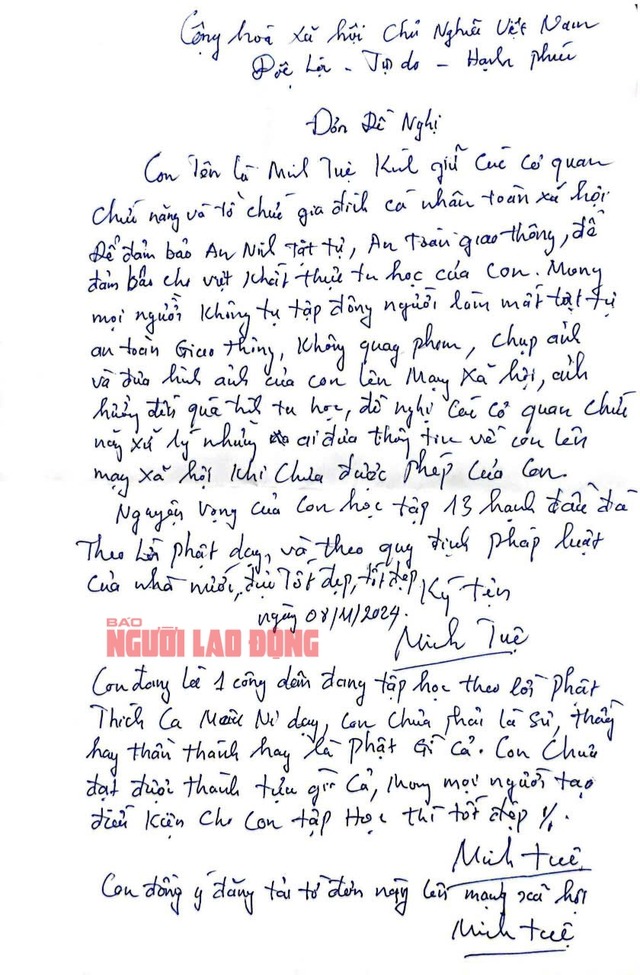 Cộng hoà xã hội Chủ Nghĩa Việt Nam
Độc Lập - Tự do - Hạnh phúc
Đơn Đề Nghị
Con Tên là Minh Tuệ Kính gửi các cơ quan
chức năng và tổ chức gia đình cá nhân toàn xã hội
Để đảm bảo An Ninh Trật tự, An toàn giao thông, để
đảm bảo cho việc khất thực tu học của con. Mong
mọi người không tụ tập đông người làm mất trật tự
an toàn Giao thông, không quay phim, chụp ảnh
và đưa hình ảnh của con lên Mạng Xã hội, ảnh
hưởng đến quá trình tu học, đề nghị các cơ quan chức
năng xử lý những ai đưa thông tin về con lên
mạng xã hội khi chưa được phép của con.
Nguyện vọng của con học tập 13 hạnh đầu đà
Theo lời phật dạy, và theo quy định pháp luật
của nhà nước, được tốt đẹp, tốt đẹp
Ký Tên
ngày 08/11/2024.
Minh Tuệ
BÁO
NGƯỜI LAO ĐỘNG
Con đang là 1 công dân đang tập học theo lời phật
Thích Ca Mâu Ni dạy, con chưa phải là sư, thầy
hay thần thánh hay là phật Gì cả. Con chưa
đạt được thành tựu gì cả, mong mọi người tạo
điều kiện cho con tập học thì tốt đẹp ./.
Minh tuệ
Con đồng ý đăng tải tờ đơn này lên mạng xã hội
Minh tuệ